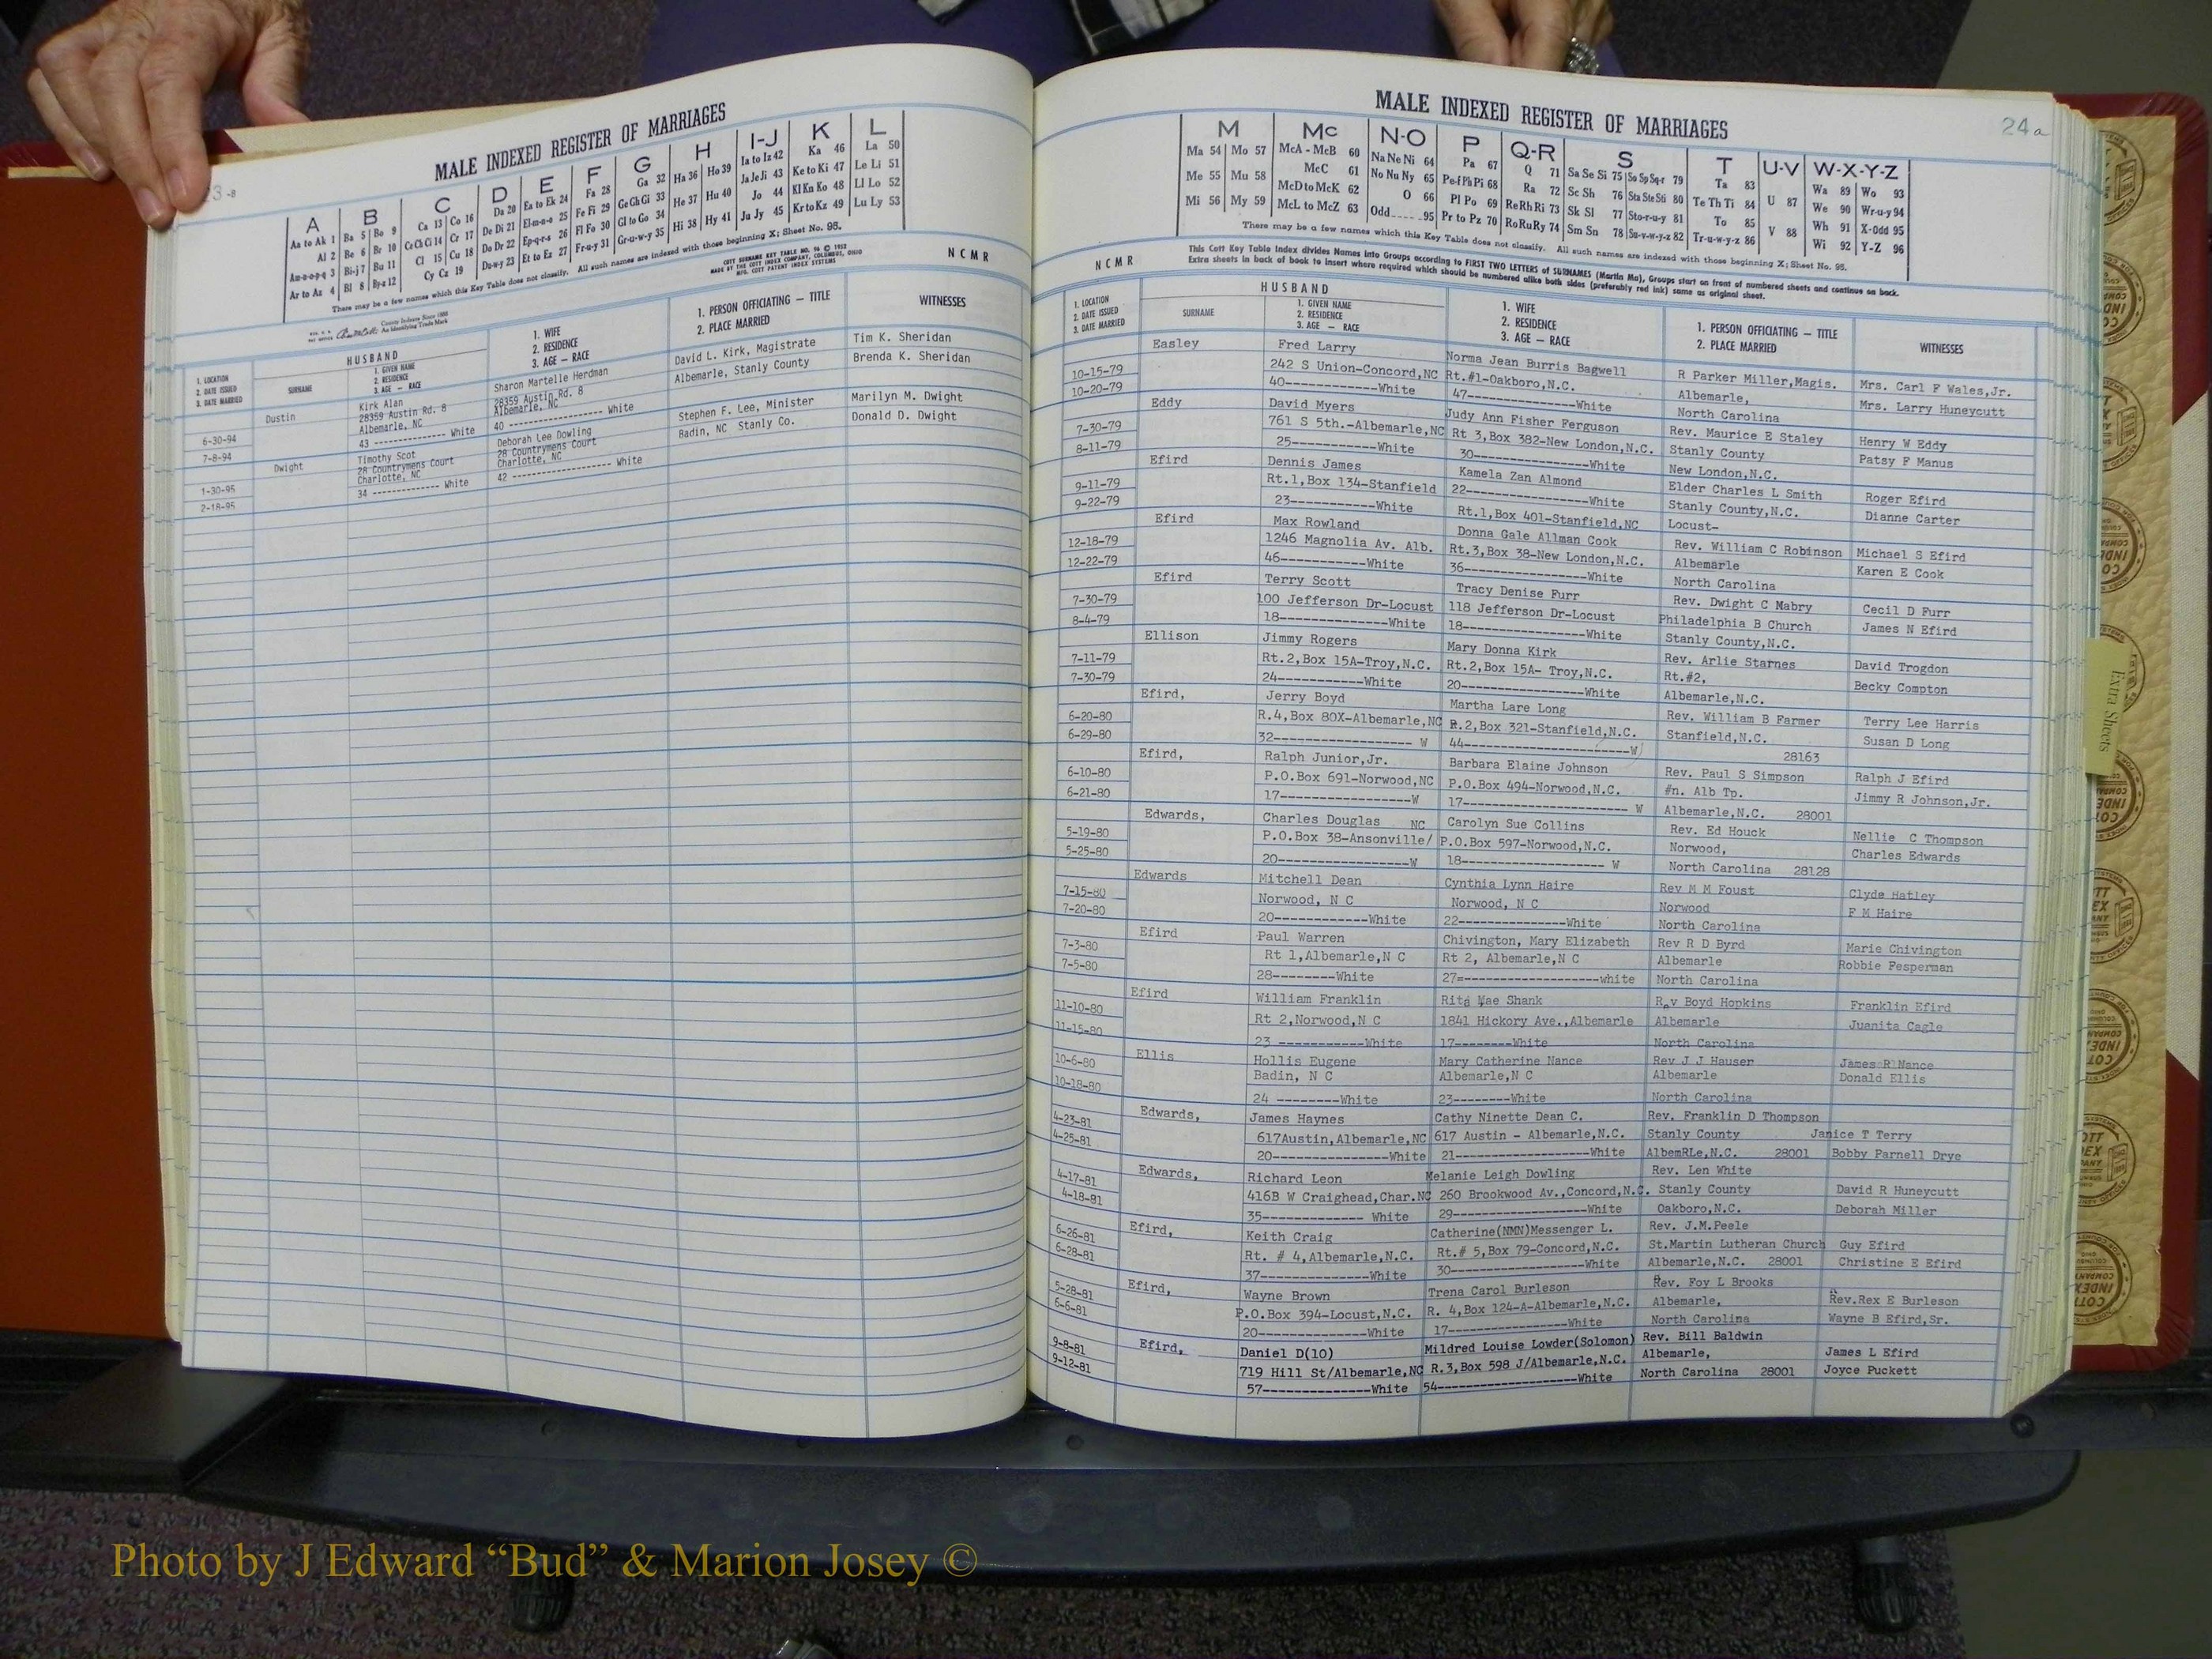 23-B
MALE INDEXED REGISTER OF MARRIAGES
A B C D E F G H I-J K L
Aa to Ak 1 Ba 5 Bo 9 Ca 13 Co 16 Da 20 Ea to Ek 24 Fa 28 Ga 32 Ha 36 Ho 39 Ia to Iz 42 Ka 46 La 50
Al 2 Be 6 Br 10 Ce Ch Ci 14 Cr 17 De Di 21 El-m-n-o 25 Fe Fi 29 Ge Gh Gi 33 He 37 Hu 40 Ja Je Ji 43 Ke to Ki 47 Le Li 51
Am-n-o-p-q 3 Bi-j 7 Bu 11 Cl 15 Cu 18 Do Dr 22 Ep-q-r-s 26 Fl Fo 30 Gl to Go 34 Hi 38 Hy 41 Jo 44 Kl Kn Ko 48 Ll Lo 52
Ar to Az 4 Bl 8 By-z 12 Cy Cz 19 Du-w-y 23 Et to Ez 27 Fr-u-y 31 Gr-u-w-y 35 Ju Jy 45 Kr to Kz 49 Lu Ly 53
There may be a few names which this Key Table does not classify. All such names are indexed with those beginning X; Sheet No. 95.
COTT SURNAME KEY TABLE NO. 96 © 1952
MADE BY THE COTT INDEX COMPANY, COLUMBUS, OHIO
MFG. COTT PATENT INDEX SYSTEMS
NCMR
County Indexes Since 1888
An Identifying Trade Mark
1. LOCATION
2. DATE ISSUED
3. DATE MARRIED
HUSBAND
SURNAME
1. GIVEN NAME
2. RESIDENCE
3. AGE — RACE
1. WIFE
2. RESIDENCE
3. AGE — RACE
1. PERSON OFFICIATING — TITLE
2. PLACE MARRIED
WITNESSES
Dustin Kirk Alan Sharon Martelle Herdman David L. Kirk, Magistrate Tim K. Sheridan
28359 Austin Rd. 8 28359 Austin Rd. 8 Albemarle, Stanly County Brenda K. Sheridan
6-30-94 Albemarle, NC Albemarle, NC
7-8-94 43 -------------- White 40 -------------- White
Dwight Timothy Scot Deborah Lee Dowling Stephen F. Lee, Minister Marilyn M. Dwight
28 Countrymens Court 28 Countrymens Court Badin, NC Stanly Co. Donald D. Dwight
1-30-95 Charlotte, NC Charlotte, NC
2-18-95 34 ------------- White 42 -------------------- White
24a
MALE INDEXED REGISTER OF MARRIAGES
M Mc N-O P Q-R S T U-V W-X-Y-Z
Ma 54 Mo 57 McA - McB 60 Na Ne Ni 64 Pa 67 Q 71 Sa Se Si 75 So Sp Sq-r 79 Ta 83 Wa 89 Wo 93
Me 55 Mu 58 McC 61 No Nu Ny 65 Pe-f Ph Pi 68 Ra 72 Sc Sh 76 Sta Ste Sti 80 Te Th Ti 84 U 87 We 90 Wr-u-y 94
Mi 56 My 59 McD to McK 62 O 66 Pl Po 69 Re Rh Ri 73 Sk Sl 77 Sto-r-u-y 81 To 85 V 88 Wh 91 X-Odd 95
McL to McZ 63 Odd 95 Pr to Pz 70 Ro Ru Ry 74 Sm Sn 78 Su-v-w-y-z 82 Tr-u-w-y-z 86 Wi 92 Y-Z 96
There may be a few names which this Key Table does not classify. All such names are indexed with those beginning X; Sheet No. 95.
This Cott Key Table Index divides Names into Groups according to FIRST TWO LETTERS of SURNAMES (Martin Ma), Groups start on front of numbered sheets and continue on back.
Extra sheets in back of book to insert where required which should be numbered alike both sides (preferably red ink) same as original sheet.
NCMR
1. LOCATION
2. DATE ISSUED
3. DATE MARRIED
HUSBAND
SURNAME
1. GIVEN NAME
2. RESIDENCE
3. AGE — RACE
1. WIFE
2. RESIDENCE
3. AGE — RACE
1. PERSON OFFICIATING — TITLE
2. PLACE MARRIED
WITNESSES
Easley Fred Larry Norma Jean Burris Bagwell R Parker Miller,Magis. Mrs. Carl F Wales,Jr.
10-15-79 242 S Union-Concord,NC Rt.#1-Oakboro,N.C. Albemarle, Mrs. Larry Huneycutt
10-20-79 40------------White 47---------------White North Carolina
Eddy David Myers Judy Ann Fisher Ferguson Rev. Maurice E Staley Henry W Eddy
7-30-79 761 S 5th.-Albemarle,NC Rt 3,Box 382-New London,N.C. Stanly County Patsy F Manus
8-11-79 25------------White 30---------------White New London,N.C.
Efird Dennis James Kamela Zan Almond Elder Charles L Smith Roger Efird
9-11-79 Rt.1,Box 134-Stanfield 22----------------White Stanly County,N.C. Dianne Carter
9-22-79 23------------White Rt.1,Box 401-Stanfield,NC Locust-
Efird Max Rowland Donna Gale Allman Cook Rev. William C Robinson Michael S Efird
12-18-79 1246 Magnolia Av. Alb. Rt.3,Box 38-New London,N.C. Albemarle Karen E Cook
12-22-79 46------------White 36----------------White North Carolina
Efird Terry Scott Tracy Denise Furr Rev. Dwight C Mabry Cecil D Furr
7-30-79 100 Jefferson Dr-Locust 118 Jefferson Dr-Locust Philadelphia B Church James N Efird
8-4-79 18--------------White 18----------------White Stanly County,N.C.
Ellison Jimmy Rogers Mary Donna Kirk Rev. Arlie Starnes David Trogdon
7-11-79 Rt.2,Box 15A-Troy,N.C. Rt.2,Box 15A- Troy,N.C. Rt.#2, Becky Compton
7-30-79 24------------White 20----------------White Albemarle,N.C.
Efird, Jerry Boyd Martha Lare Long Rev. William B Farmer Terry Lee Harris
6-20-80 R.4,Box 80X-Albemarle,NC R.2,Box 321-Stanfield,N.C. Stanfield,N.C. Susan D Long
6-29-80 32------------------ W 44----------------------W 28163
Efird, Ralph Junior,Jr. Barbara Elaine Johnson Rev. Paul S Simpson Ralph J Efird
6-10-80 P.O.Box 691-Norwood,NC P.O.Box 494-Norwood,N.C. #n. Alb Tp. Jimmy R Johnson,Jr.
6-21-80 17-----------------W 17---------------------- W Albemarle,N.C. 28001
Edwards, Charles Douglas NC Carolyn Sue Collins Rev. Ed Houck Nellie C Thompson
5-19-80 P.O.Box 38-Ansonville/ P.O.Box 597-Norwood,N.C. Norwood, Charles Edwards
5-25-80 20-----------------W 18------------------- W North Carolina 28128
Edwards Mitchell Dean Cynthia Lynn Haire Rev M M Foust Clyde Hatley
7-15-80 Norwood, N C Norwood, N C Norwood F M Haire
7-20-80 20------------White 22---------------White North Carolina
Efird Paul Warren Chivington, Mary Elizabeth Rev R D Byrd Marie Chivington
7-3-80 Rt 1,Albemarle,N C Rt 2, Albemarle,N C Albemarle Robbie Fesperman
7-5-80 28--------White 27=-------------------white North Carolina
Efird William Franklin Rita Mae Shank Rev Boyd Hopkins Franklin Efird
11-10-80 Rt 2,Norwood,N C 1841 Hickory Ave.,Albemarle Albemarle Juanita Cagle
11-15-80 23 -----------White 17--------White North Carolina
Ellis Hollis Eugene Mary Catherine Nance Rev J J Hauser James R Nance
10-6-80 Badin, N C Albemarle,N C Albemarle Donald Ellis
10-18-80 24 --------White 23--------White North Carolina
Edwards, James Haynes Cathy Ninette Dean C. Rev. Franklin D Thompson
4-23-81 617Austin,Albemarle,NC 617 Austin - Albemarle,N.C. Stanly County Janice T Terry
4-25-81 20--------------White 21-----------------White AlbemRLe,N.C. 28001 Bobby Parnell Drye
Edwards, Richard Leon Melanie Leigh Dowling Rev. Len White
4-17-81 416B W Craighead,Char.NC 260 Brookwood Av.,Concord,N.C. Stanly County David R Huneycutt
4-18-81 35------------- White 29-----------------White Oakboro,N.C. Deborah Miller
Efird, Keith Craig Catherine(NMN)Messenger L. Rev. J.M.Peele
6-26-81 Rt. # 4,Albemarle,N.C. Rt.# 5,Box 79-Concord,N.C. St.Martin Lutheran Church Guy Efird
6-28-81 37--------------White 30-----------------White Albemarle,N.C. 28001 Christine E Efird
Efird, Wayne Brown Trena Carol Burleson Rev. Foy L Brooks
5-28-81 P.O.Box 394-Locust,N.C. R. 4,Box 124-A-Albemarle,N.C. Albemarle, Rev.Rex E Burleson
6-6-81 20--------------White 17---------------White North Carolina Wayne B Efird,Sr.
Efird, Daniel D(10) Mildred Louise Lowder(Solomon) Rev. Bill Baldwin
9-8-81 719 Hill St/Albemarle,NC R.3,Box 598 J/Albemarle,N.C. Albemarle, James L Efird
9-12-81 57--------------White 54-----------------White North Carolina 28001 Joyce Puckett
Extra Sheets
Photo by J Edward “Bud” & Marion Josey ©